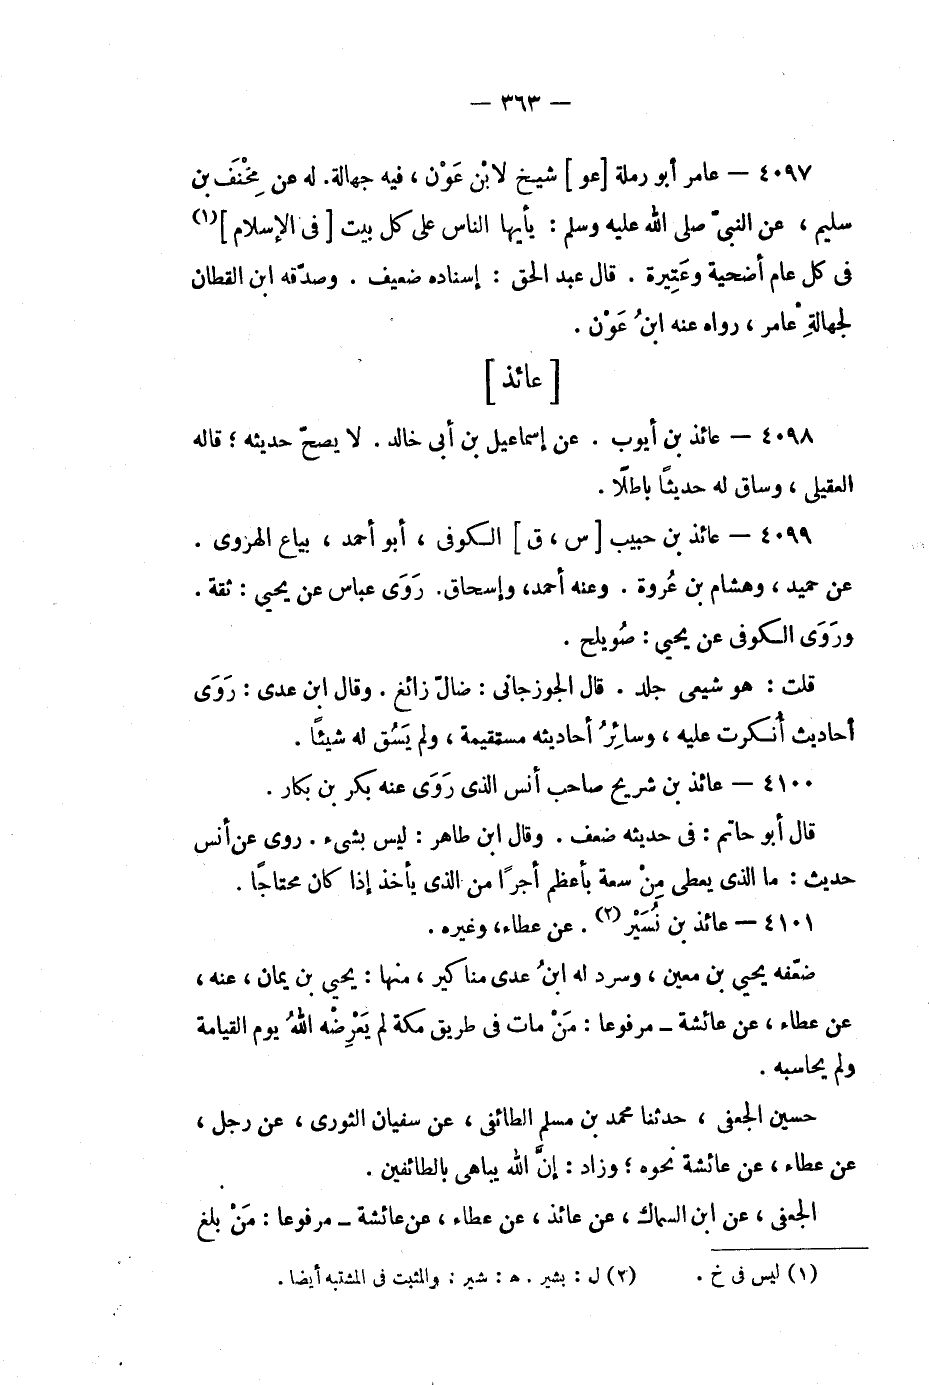 — ٣٦٣ —
٤٠٩٧ — عامر أبو رملة [عو] شيخ لابْن عَوْن ، فيه جهالة. له عن مِخْنَف بن
سليم ، عن النبيّ صلى الله عليه وسلم : يأيها الناس على كل بيت [ فى الإسلام ](١)
فى كل عام أضحية وعَتِيرة . قال عبد الحق : إسناده ضعيف . وصدّقه ابن القطان
لجهالةِ عامر ، رواه عنه ابنُ عَوْن .
[ عائذ ]
٤٠٩٨ — عائذ بن أيوب . عن إسماعيل بن أبى خالد . لا يصحّ حديثه ؛ قاله
العقيلى ، وساق له حديثًا باطلًا .
٤٠٩٩ — عائذ بن حبيب [ س ، ق ] الكوفى ، أبو أحمد ، بياع الهروى .
عن حميد ، وهشام بن عُروة . وعنه أحمد، وإسحاق. رَوَى عباس عن يحيى : ثقة .
ورَوَى الكوفى عن يحيى : صُويلح .
قلت : هو شيعى جلد . قال الجوزجانى : ضالّ زائغ . وقال ابن عدى : رَوَى
أحاديث أُنكرت عليه ، وسائِرُ أحاديثه مستقيمة ، ولم يَسُق له شيئًا .
٤١٠٠ — عائذ بن شريح صاحب أنس الذى رَوَى عنه بكر بن بكار .
قال أبو حاتم : فى حديثه ضعف . وقال ابن طاهر : ليس بشىء . روى عن أنس
حديث : ما الذى يعطى مِنْ سعة بأعظم أجرًا من الذى يأخذ إذا كان محتاجًا .
٤١٠١ — عائذ بن نُسَيْر (٢) . عن عطاء، وغيره .
ضعّفه يحيى بن معين ، وسرد له ابنُ عدى مناكير ، منها : يحيى بن يمان ، عنه ،
عن عطاء ، عن عائشة ــ مرفوعا : مَنْ مات فى طريق مكة لم يَعْرِضْه اللهُ يوم القيامة
ولم يحاسبه .
حسين الجعفى ، حدثنا محمد بن مسلم الطائفى ، عن سفيان الثورى ، عن رجل ،
عن عطاء ، عن عائشة نحوه ؛ وزاد : إنَّ الله يباهى بالطائفين .
الجعفى ، عن ابن السماك ، عن عائذ ، عن عطاء ، عن عائشة ــ مرفوعا : مَنْ بلغ
(١) ليس فى خ . (٢) ل : بشير . ه : شير : والمثبت فى المشتبه أيضا .